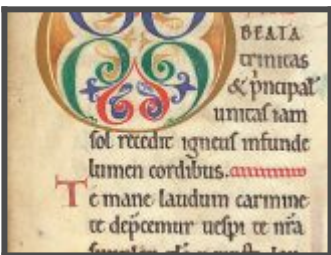 O BEATA
trinitas
& p̄ncipal̄
unitas iam
sol recedit igneus infunde
lumen cordibus.
Te mane laudum carmine
te dep̄cemur uesp̄i te nr̄a